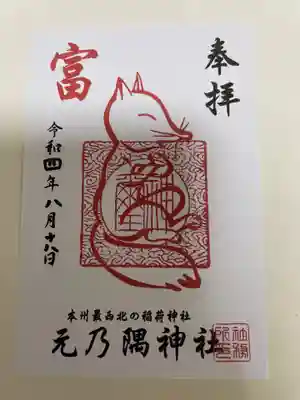 奉拝
富
令和四年八月十八日
本州最西北の稲荷神社
元乃隅神社